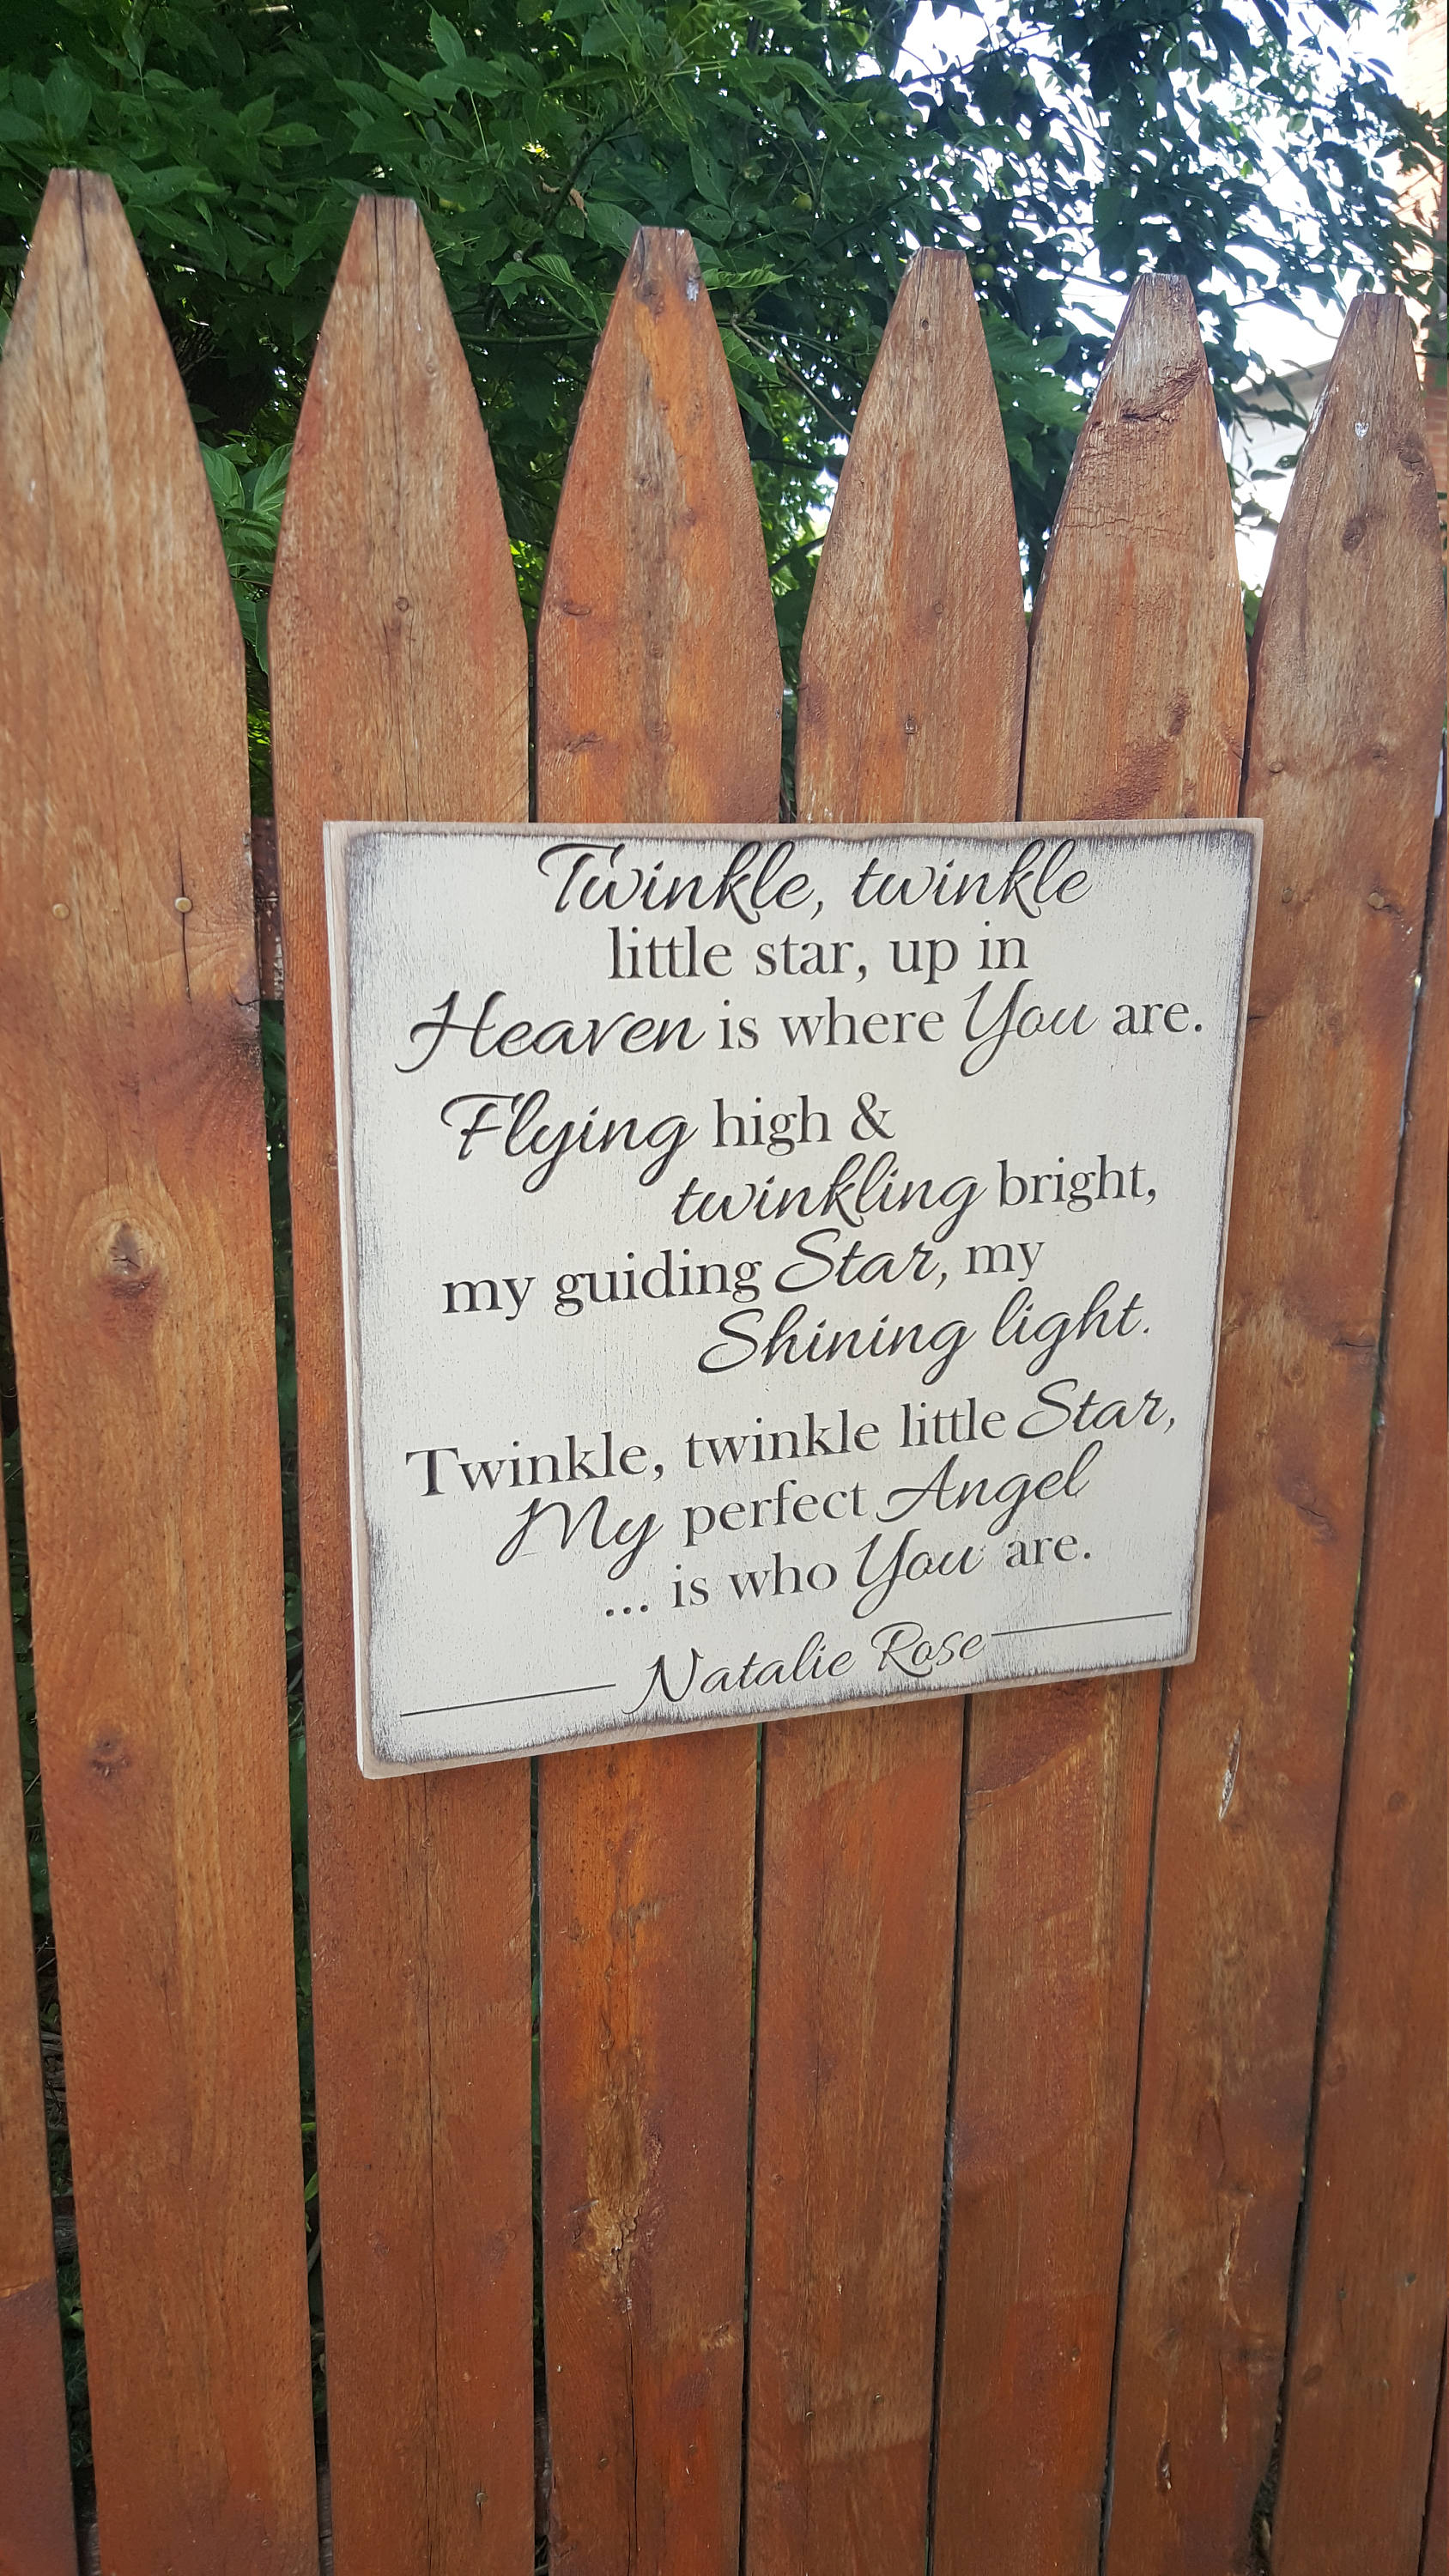 Twinkle, twinkle
little star, up in
Heaven is where You are.
Flying high &
twinkling bright,
my guiding Star, my
Shining light.
Twinkle, twinkle little Star,
My perfect Angel
... is who You are.
Natalie Rose